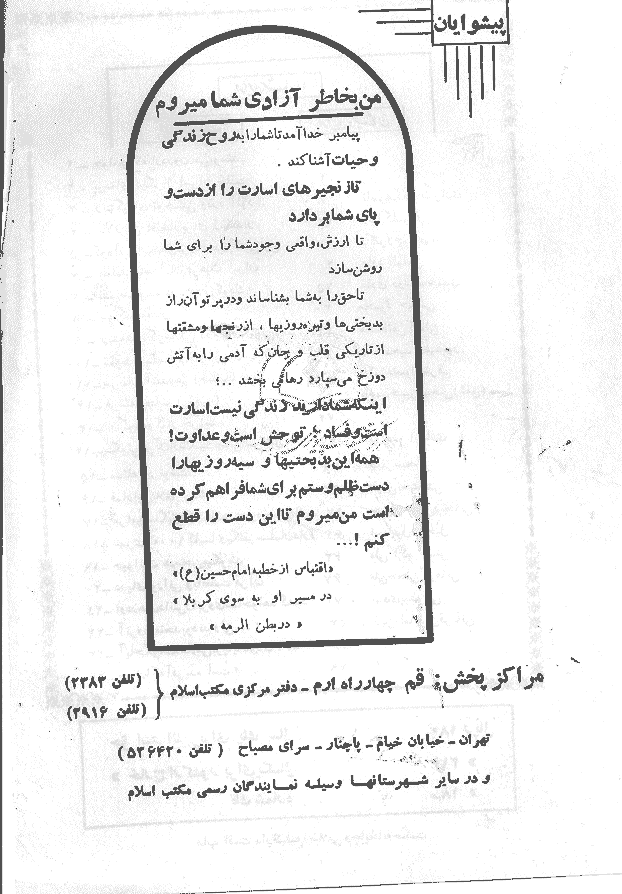 پیشوایان
من بخاطر آزادی شما میروم
پیامبر خدا آمد تا شما را به روح زندگی
و حیات آشنا کند .
تا زنجیرهای اسارت را از دست و
پای شما بردارد
تا ارزش واقعی وجود شما را برای شما
روشن سازد
تا حق را به شما بشناساند و در پرتو آن از
بدبختی‌ها و تیره‌روزیها ، از رنجها و مشقتها
از تاریکی قلب و جان که آدمی را به آتش
دوزخ می‌سپارد رهائی بخشد ..؛
اینکه شما دارید زندگی نیست اسارت
است و فساد ؛ توحش است و عداوت!
همه این بدبختیها و سیه‌روزیها را
دست ظلم و ستم برای شما فراهم کرده
است من میروم تا این دست را قطع
کنم !...
«اقتباس از خطبه امام حسین (ع)»
در مسیر او به سوی کربلا »
« در بطن الرمه »
مراکز پخش: قم چهارراه ارم ـ دفتر مرکزی مکتب اسلام { (تلفن ۲۳۸۳)
(تلفن ۲۹۱۶)
تهران ـ خیابان خیام ـ پاچنار ـ سرای مصباح ( تلفن ۵۳۶۴۲۰)
و در سایر شهرستانها وسیله نمایندگان رسمی مکتب اسلام